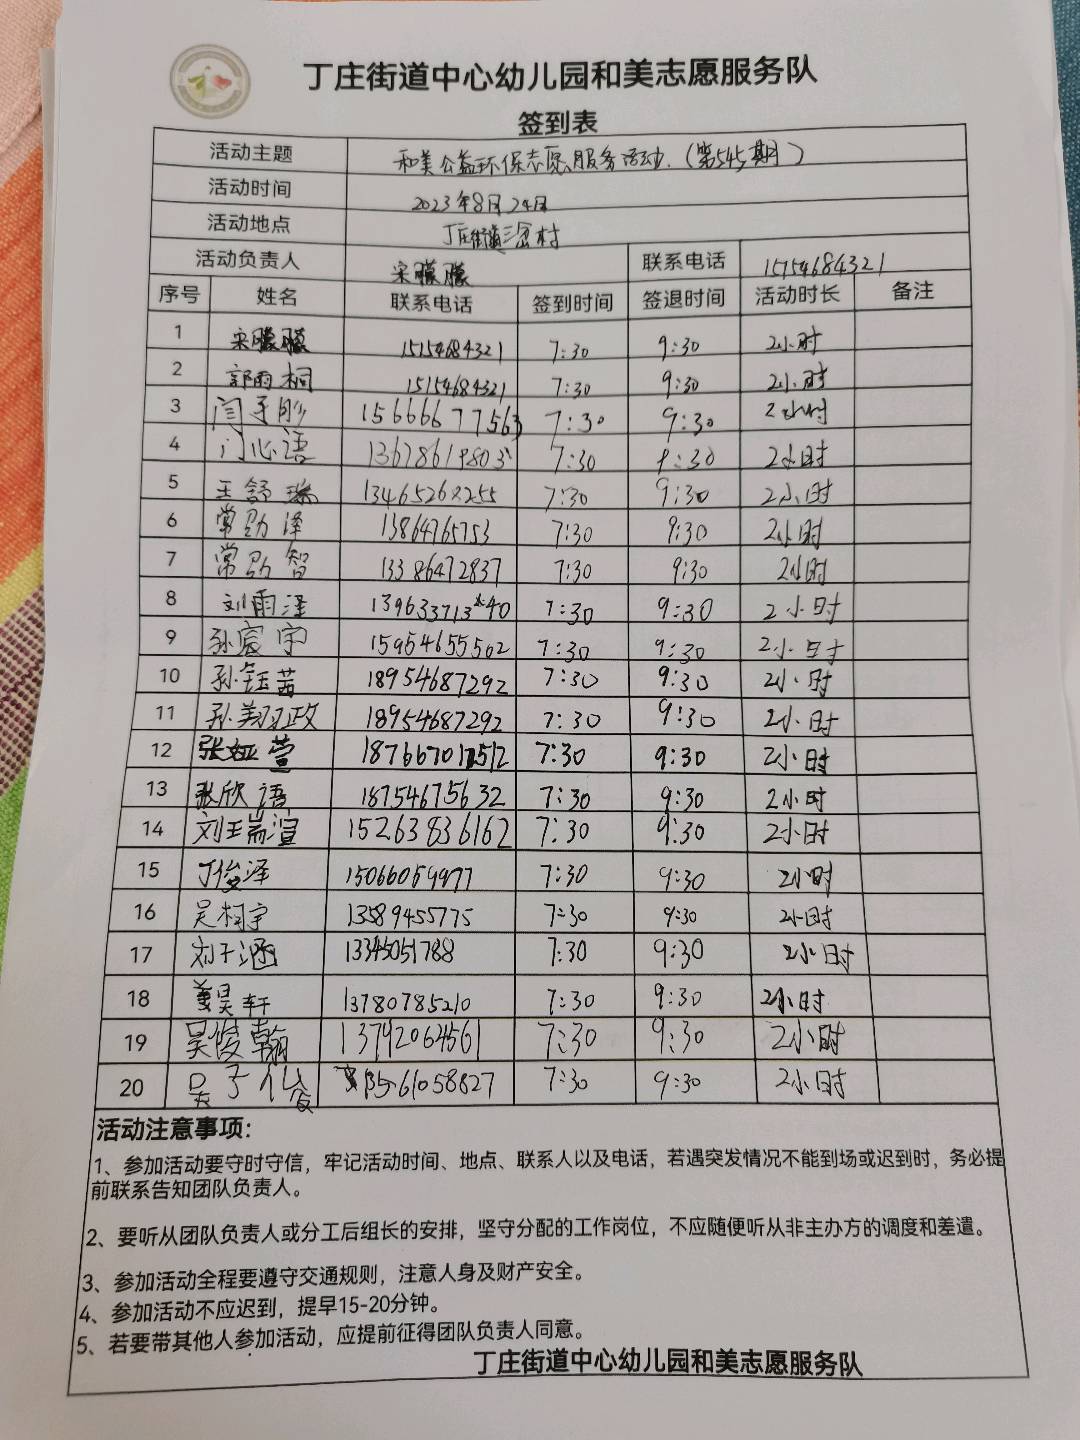 丁庄街道中心幼儿园和美志愿服务队
签到表
活动主题 和美公益环保志愿服务活动.(第545期)
活动时间 2023年8月24日
活动地点 丁庄街道三岔村
活动负责人 宋朦朦 联系电话 15154684321
序号 姓名 联系电话 签到时间 签退时间 活动时长 备注
1 宋朦朦 15154684321 7:30 9:30 2小时
2 郭雨桐 15154684321 7:30 9:30 2小时
3 15666677563 7:30 9:30 2小时
4 门心语 7:30 9:30 2小时
5 王舒瑞 13465268255 7:30 9:30 2小时
6 常勋泽 13864765753 7:30 9:30 2小时
7 常勋智 13386472837 7:30 9:30 2小时
8 刘雨泽 7:30 9:30 2小时
9 孙宸宇 15954655502 7:30 9:30 2小时
10 孙钰茜 18954687292 7:30 9:30 2小时
11 18954687292 7:30 9:30 2小时
12 张娅萱 7:30 9:30 2小时
13 张欣语 18754675632 7:30 9:30 2小时
14 15263836162 7:30 9:30 2小时
15 丁俊泽 15066059977 7:30 9:30 2小时
16 吴柯宇 13589455775 7:30 9:30 2小时
17 刘子涵 13345051788 7:30 9:30 2小时
18 13780785210 7:30 9:30 2小时
19 吴俊翰 13792064561 7:30 9:30 2小时
20 吴子俊 13561058827 7:30 9:30 2小时
活动注意事项:
1、参加活动要守时守信，牢记活动时间、地点、联系人以及电话，若遇突发情况不能到场或迟到时，务必提
前联系告知团队负责人。
2、要听从团队负责人或分工后组长的安排，坚守分配的工作岗位，不应随便听从非主办方的调度和差遣。
3、参加活动全程要遵守交通规则，注意人身及财产安全。
4、参加活动不应迟到，提早15-20分钟。
5、若要带其他人参加活动，应提前征得团队负责人同意。
丁庄街道中心幼儿园和美志愿服务队